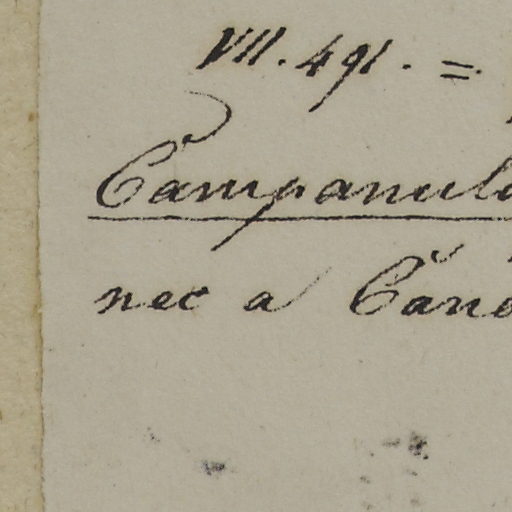 VII. 491. =
Campanul
nec a Can